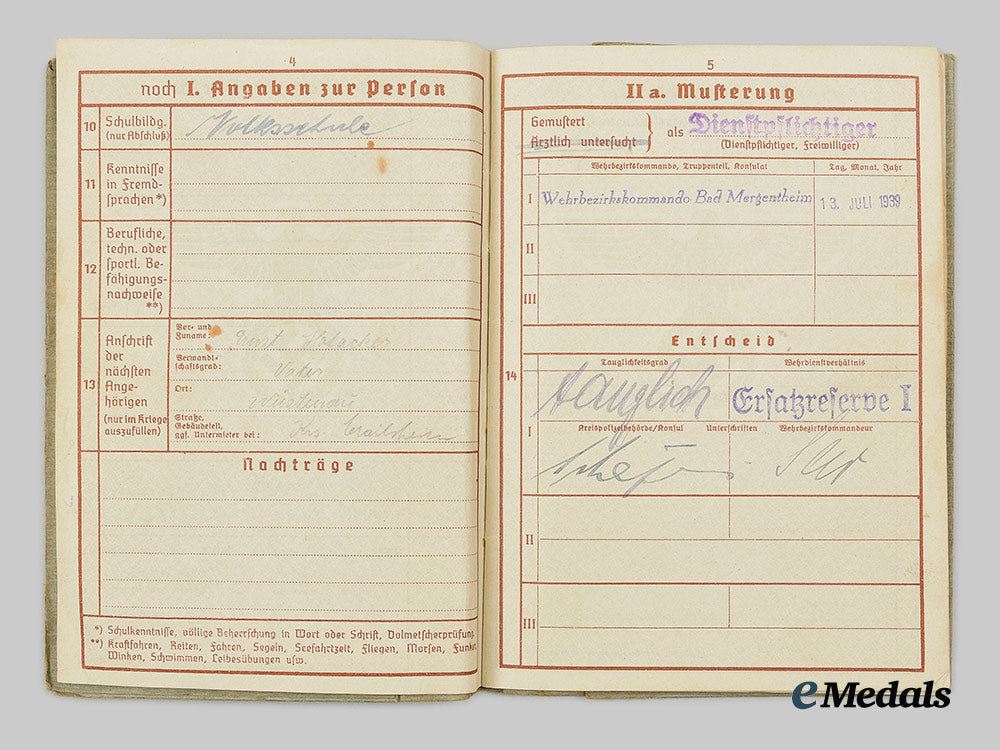 4
noch I. Angaben zur Person
10
Schulbildg.
(nur Abschluß)
Volksschule
11
Kenntnisse
in Fremd-
sprachen*)
12
Berufliche,
techn. oder
sportl. Be-
fähigungs-
nachweise
**)
13
Anschrift
der
nächsten
Ange-
hörigen
(nur im Kriege
auszufüllen)
Vor- und
Zuname:
Verwandt-
schaftsgrad:
Vater
Ort:
Straße,
Gebäudeteil,
ggf. Untermieter bei:
Krs. Crailsheim
Nachträge
*) Schulkenntnisse, völlige Beherrschung in Wort oder Schrift, Dolmetscherprüfung.
**) Kraftfahren, Reiten, Fahren, Segeln, Seefahrtzeit, Fliegen, Morsen, Funken
Winken, Schwimmen, Leibesübungen usw.
5
II a. Musterung
Gemustert
Ärztlich untersucht
als Dienstpflichtiger
(Dienstpflichtiger, Freiwilliger)
Wehrbezirkskommando, Truppenteil, Konsulat
Tag, Monat, Jahr
I
Wehrbezirkskommando Bad Mergentheim
13. JULI 1939
II
III
Entscheid
14
Tauglichkeitsgrad
Wehrdienstverhältnis
tauglich
Ersatzreserve I
I
Kreispolizeibehörde/Konsul
Unterschriften
Wehrbezirkskommandeur
II
III
eMedals